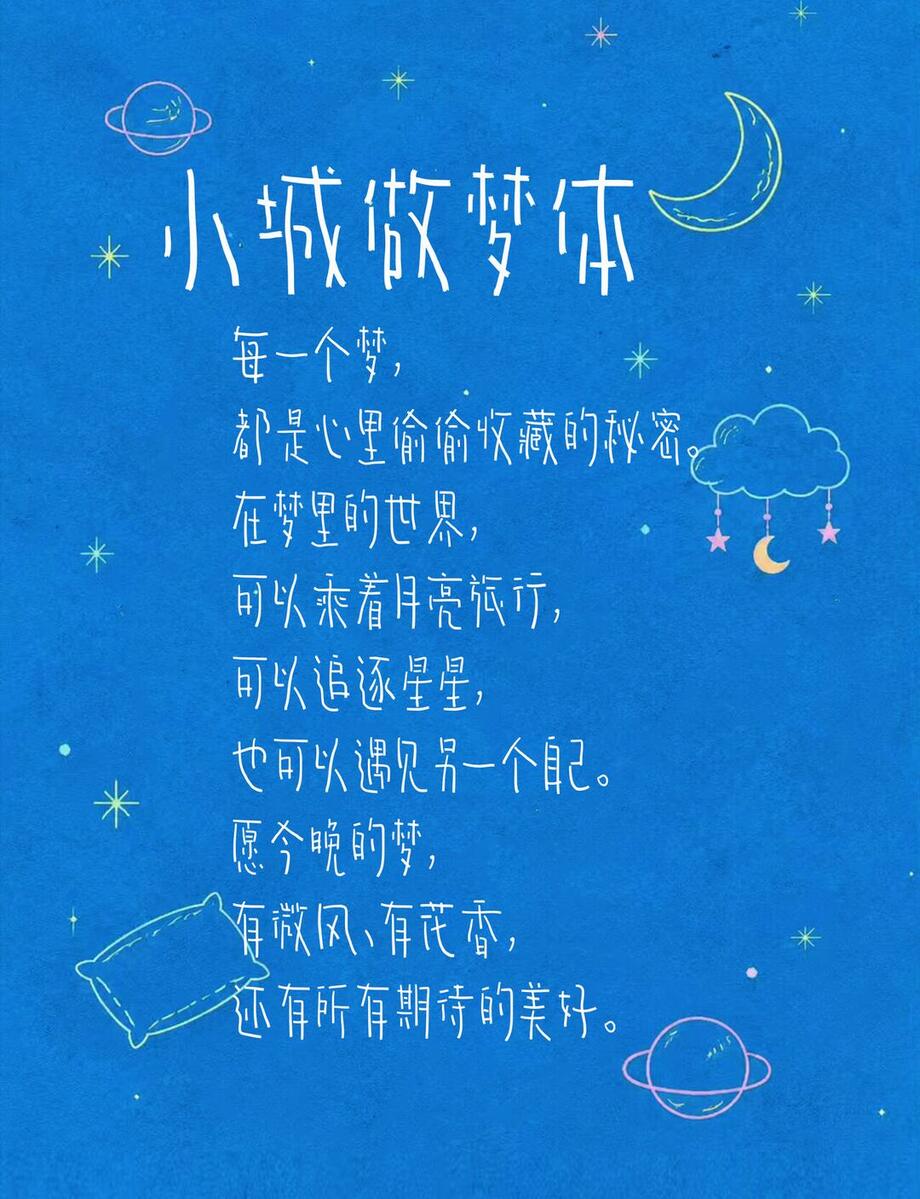 小城做梦体
每一个梦，
都是心里偷偷收藏的秘密。
在梦里的世界，
可以乘着月亮旅行，
可以追逐星星，
也可以遇见另一个自己。
愿今晚的梦，
有微风、有花香，
还有所有期待的美好。